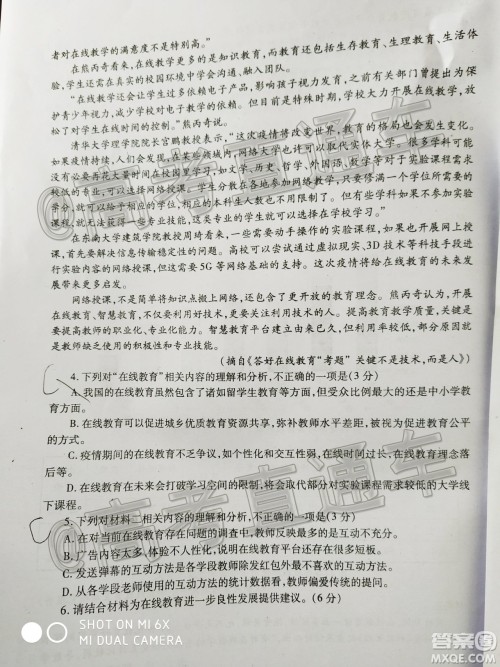 者对在线教学的满意度不是特别高。”
在熊丙奇看来，在线教学更多的是知识教育，而教育还包括生存教育、生理教育、生活体
验，学生还需在真实的校园环境中学会沟通、融入团队。
“在线教学还会让学生过多依赖电子产品，影响孩子视力发育，之前有关部门曾提出为保
护青少年视力，减少学校对电子教学的依赖。但目前是特殊时期，学校大力开展在线教学，放
松了对学生在线时间的控制。”熊丙奇说。
清华大学理学院院长宫鹏教授表示，“这次疫情将改变世界，教育的格局也会发生变化。
如果疫情持续，人们会发现，在某些领域内，网络大学也许可以取代实体大学。很多学科学生
没有必要再花大量时间在校园里学习，如文学、历史、哲学、外国语、数学等对于实验课程需求
较低的专业，可以选择网络授课，学生分散在各地参加网络教学，只要修满一个学位所需要的
学分，就可以给予相应的学位，这样名校的本科生人数也不用限制了。但有些学科如果不参与实验
课程，就无法获得一些专业技能，这类专业的学生就可以选择在学校学习。”
在东南大学建筑学院教授周琦看来，一些需要动手操作的实验课程，如果也开展网上授
课，首先要解决信息传输稳定表达的问题。高校可以尝试通过虚拟现实、3D 技术等科技手段进
行实验内容的网络授课，但这需要 5G 等网络基础的支持。这次疫情将给在线教育的未来发
展带来更多启发。
网络授课，不是简单将知识点搬上网络，还包含了更开放的教育理念。熊丙奇认为，开展
在线教育、智慧教育，不仅要利用好技术，更要关注利用技术的人。推进在线教育，关键的是
要提高教师的职业化、专业化能力。智慧教育平台建立由来已久，但利用率较低，部分原因就
是教师缺乏使用的积极性和专业技能。
（摘自《答好在线教育“考题”关键不是技术，而是人》）
4. 下列对“在线教育”相关内容的理解和分析，不正确的一项是(3 分)
A. 我国的在线教育虽然包含了诸如留学生教育等方面，但受众比例最大的还是中小学教
育方面。
B. 在线教育可以促进城乡优质教育资源共享，弥补教师水平差距，被视为促进教育公平
的方式。
C. 疫情期间的在线教育不乏争议，如个性化和交互性弱，在线时间过长，在线教育理念落
后等。
D. 在线教育在未来会打破学习空间的限制，将会取代部分对实验课程需求较低的大学线
下课程。
5. 下列对材料二相关内容的理解和分析，不正确的一项是(3 分)
A. 在对当前在线教育存在问题的调查中，教师反映最多的是互动不充分。
B. 广告内容太多，体验不人性化，说明在线教育平台还存在很多短板。
C. 发送弹幕的互动方法是各学段教师最喜欢采用的互动方法。
D. 从各学段老师使用的互动方法的统计数据看，教师偏爱传统的提问。
6. 请结合材料为在线教育进一步良性发展提供建议。(6 分)
@高考直通车
@高考直通车
SHOT ON MI 6X
MI DUAL CAMERA
答案圈
MXQE.COM